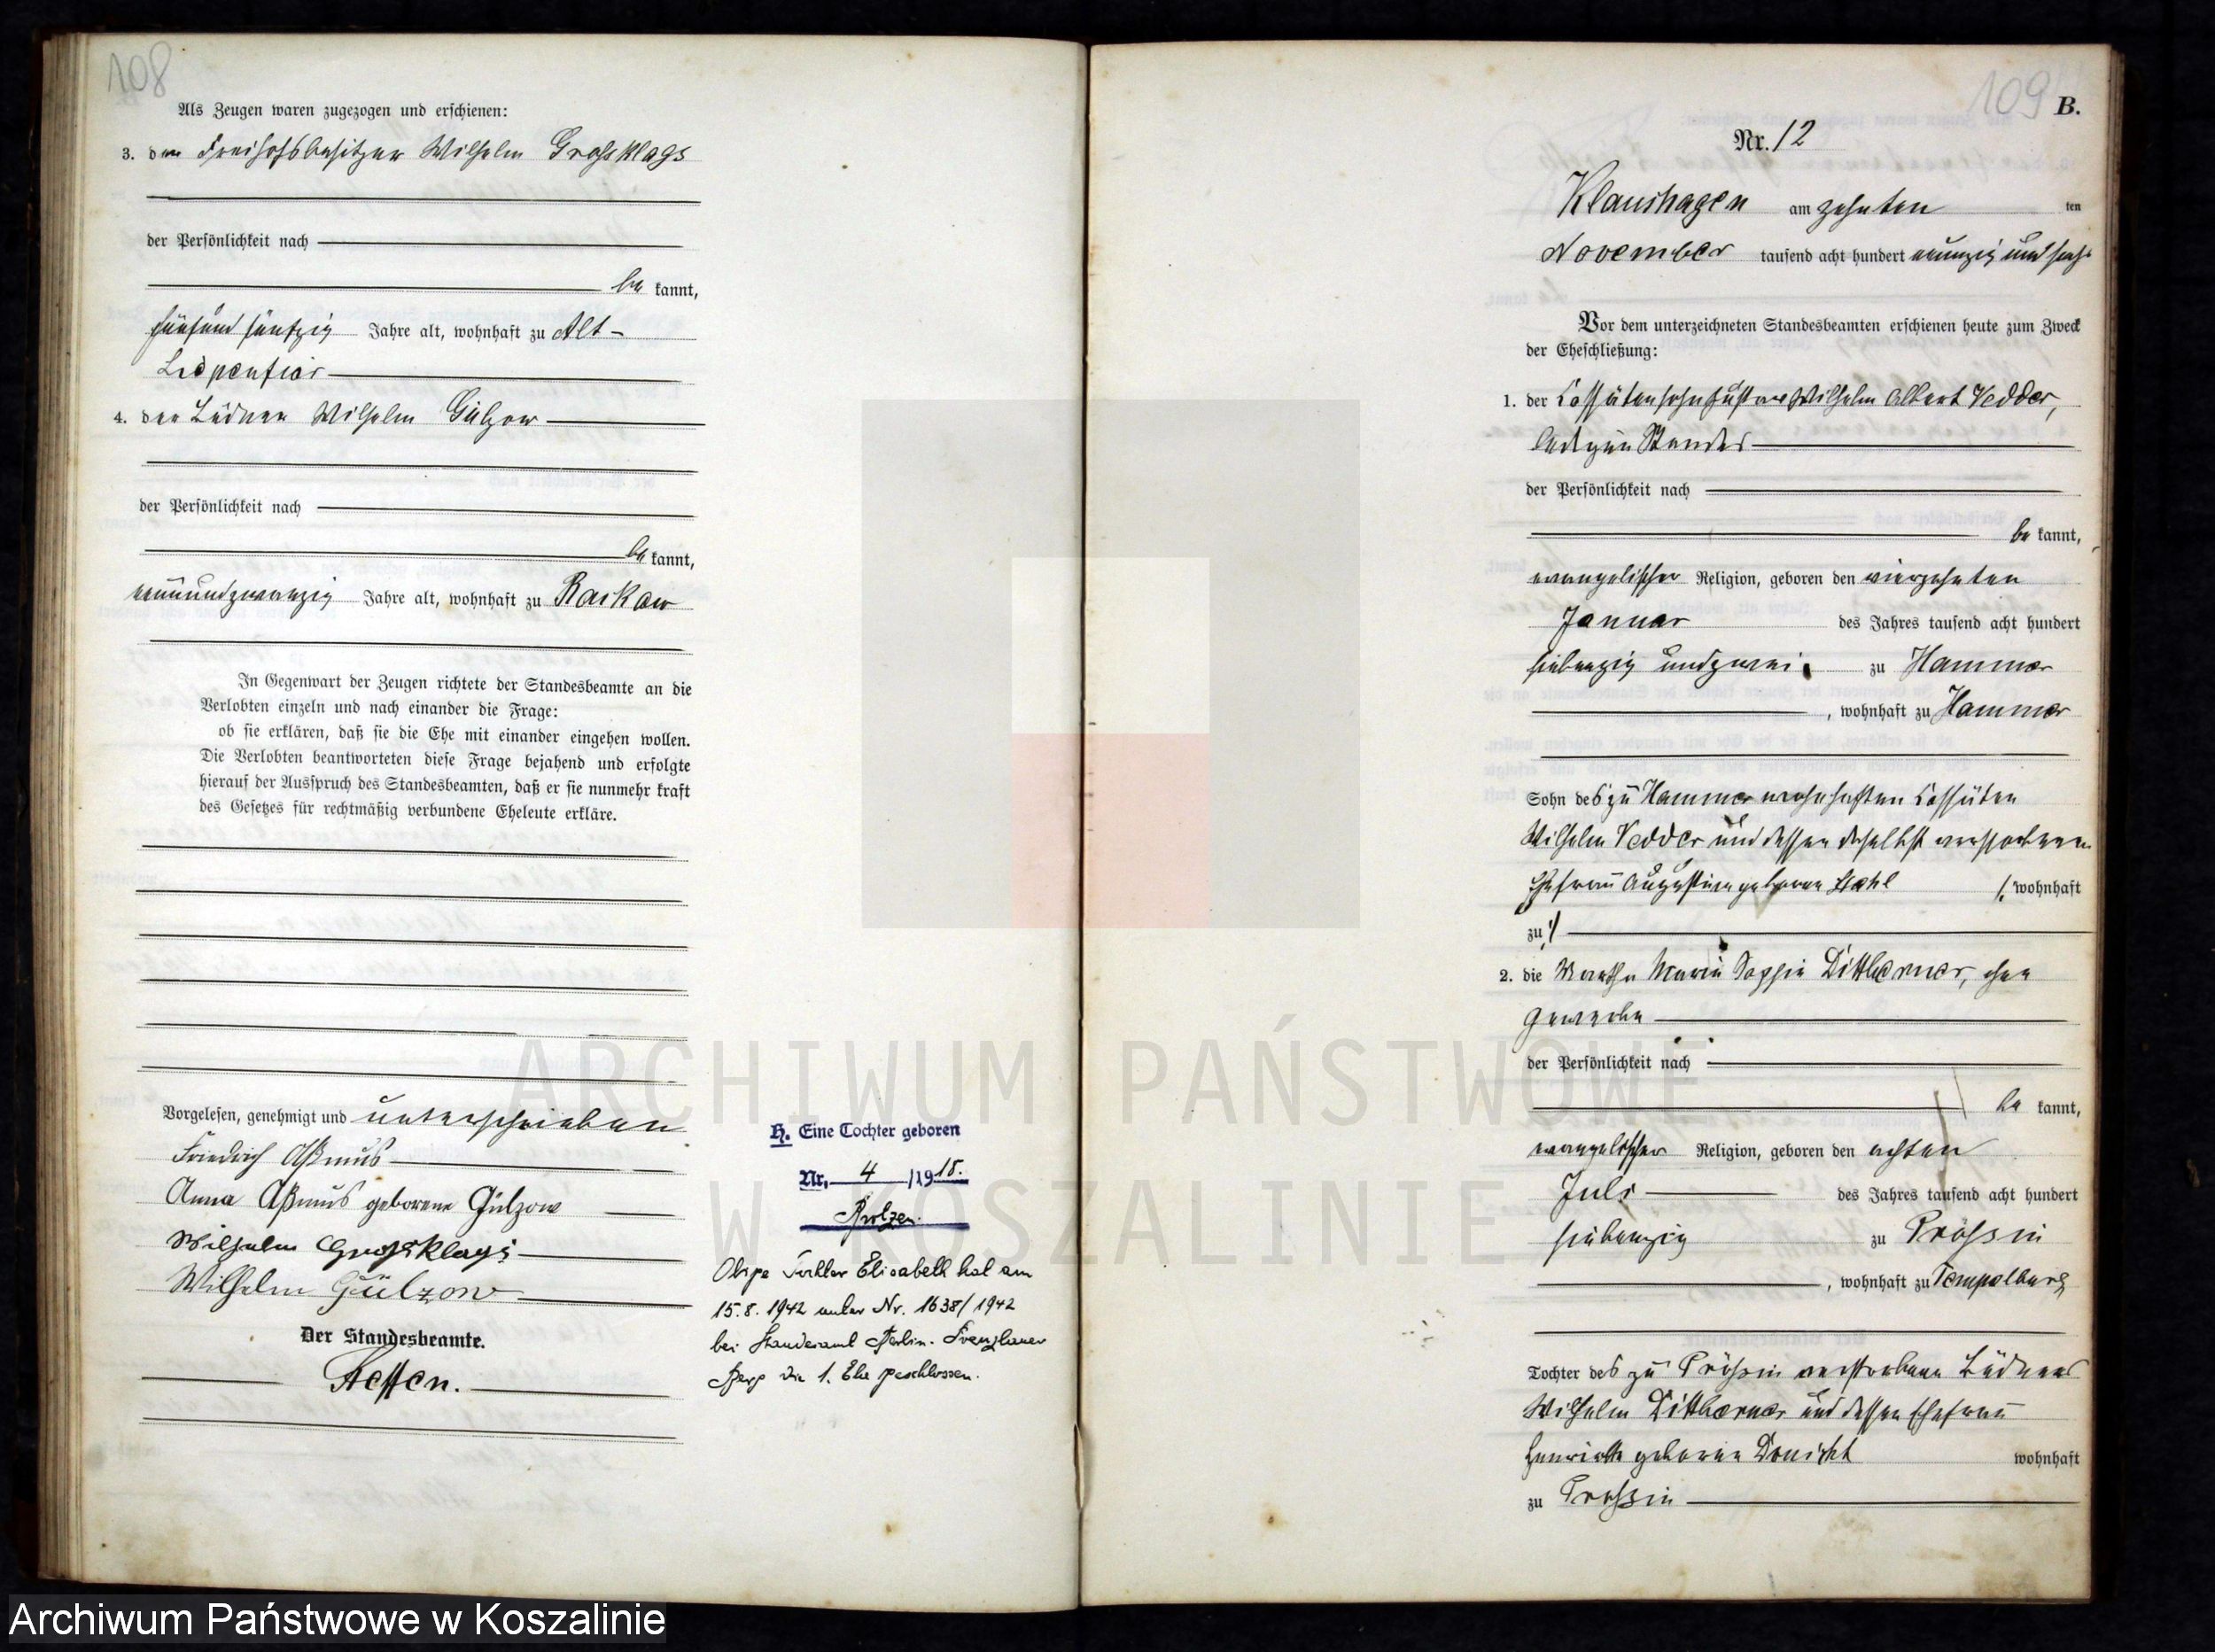 108
Als Zeugen waren zugezogen und erschienen:
3. der Freihofsbesitzer Wilhelm Grossklags
der Persönlichkeit nach
be kannt,
fünfundfünfzig Jahre alt, wohnhaft zu Alt-
Liepenfier
4. der Büdner Wilhelm Gülzow
der Persönlichkeit nach
be kannt,
neunundzwanzig Jahre alt, wohnhaft zu Rackow
In Gegenwart der Zeugen richtete der Standesbeamte an die
Verlobten einzeln und nach einander die Frage:
ob sie erklären, daß sie die Ehe mit einander eingehen wollen.
Die Verlobten beantworteten diese Frage bejahend und erfolgte
hierauf der Ausspruch des Standesbeamten, daß er sie nunmehr kraft
des Gesetzes für rechtmäßig verbundene Eheleute erkläre.
Vorgelesen, genehmigt und unterschrieben
Friedrich Aßmus
Anna Aßmus geborene Gülzow
Wilhelm Grossklags
Wilhelm Gülzow
Der Standesbeamte.
H. Eine Tochter geboren
Nr. 4 /1918.
Polzen.
Obige Tochter Elisabeth hat am
15.8.1942 unter Nr. 1638/1942
bei Standesamt Berlin-Prenzlauer
Berg die 1. Ehe geschlossen.
109
B.
Nr. 12
Klaushagen am zehnten ten
November tausend acht hundert neunzig und sechs
Vor dem unterzeichneten Standesbeamten erschienen heute zum Zweck
der Eheschließung:
1. der Kossätensohn Gustav Wilhelm Albert Vedder,
ledigen Standes
der Persönlichkeit nach
be kannt,
evangelischer Religion, geboren den vierzehnten
Januar des Jahres tausend acht hundert
siebenzig und zwei zu Hammer
, wohnhaft zu Hammer
Sohn des zu Hammer wohnhaften Kossäten
Wilhelm Vedder und dessen daselbst verstorbenen
Ehefrau Augustine geborene Stahl wohnhaft
zu
2. die Martha Marie Sophie Dittberner, ohne
Gewerbe
der Persönlichkeit nach
be kannt,
evangelischer Religion, geboren den achten
Juli des Jahres tausend acht hundert
siebenzig zu Prössin
, wohnhaft zu Tempelburg
Tochter des zu Prössin verstorbenen Büdners
Wilhelm Dittberner und dessen Ehefrau
Henriette geborene Donicht wohnhaft
zu Prössin
ARCHIWUM PAŃSTWOWE
W KOSZALINIE
Archiwum Państwowe w Koszalinie